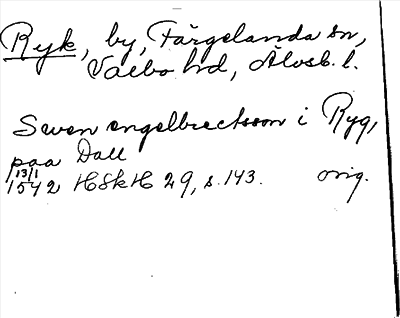 Ryk, by, Färgelanda sn,
Valbo hd, Älvsb. l.
Swen engelbrectsson i Ryg,
paa Dall
13/1
1542 HSkH 29, s. 143. orig.